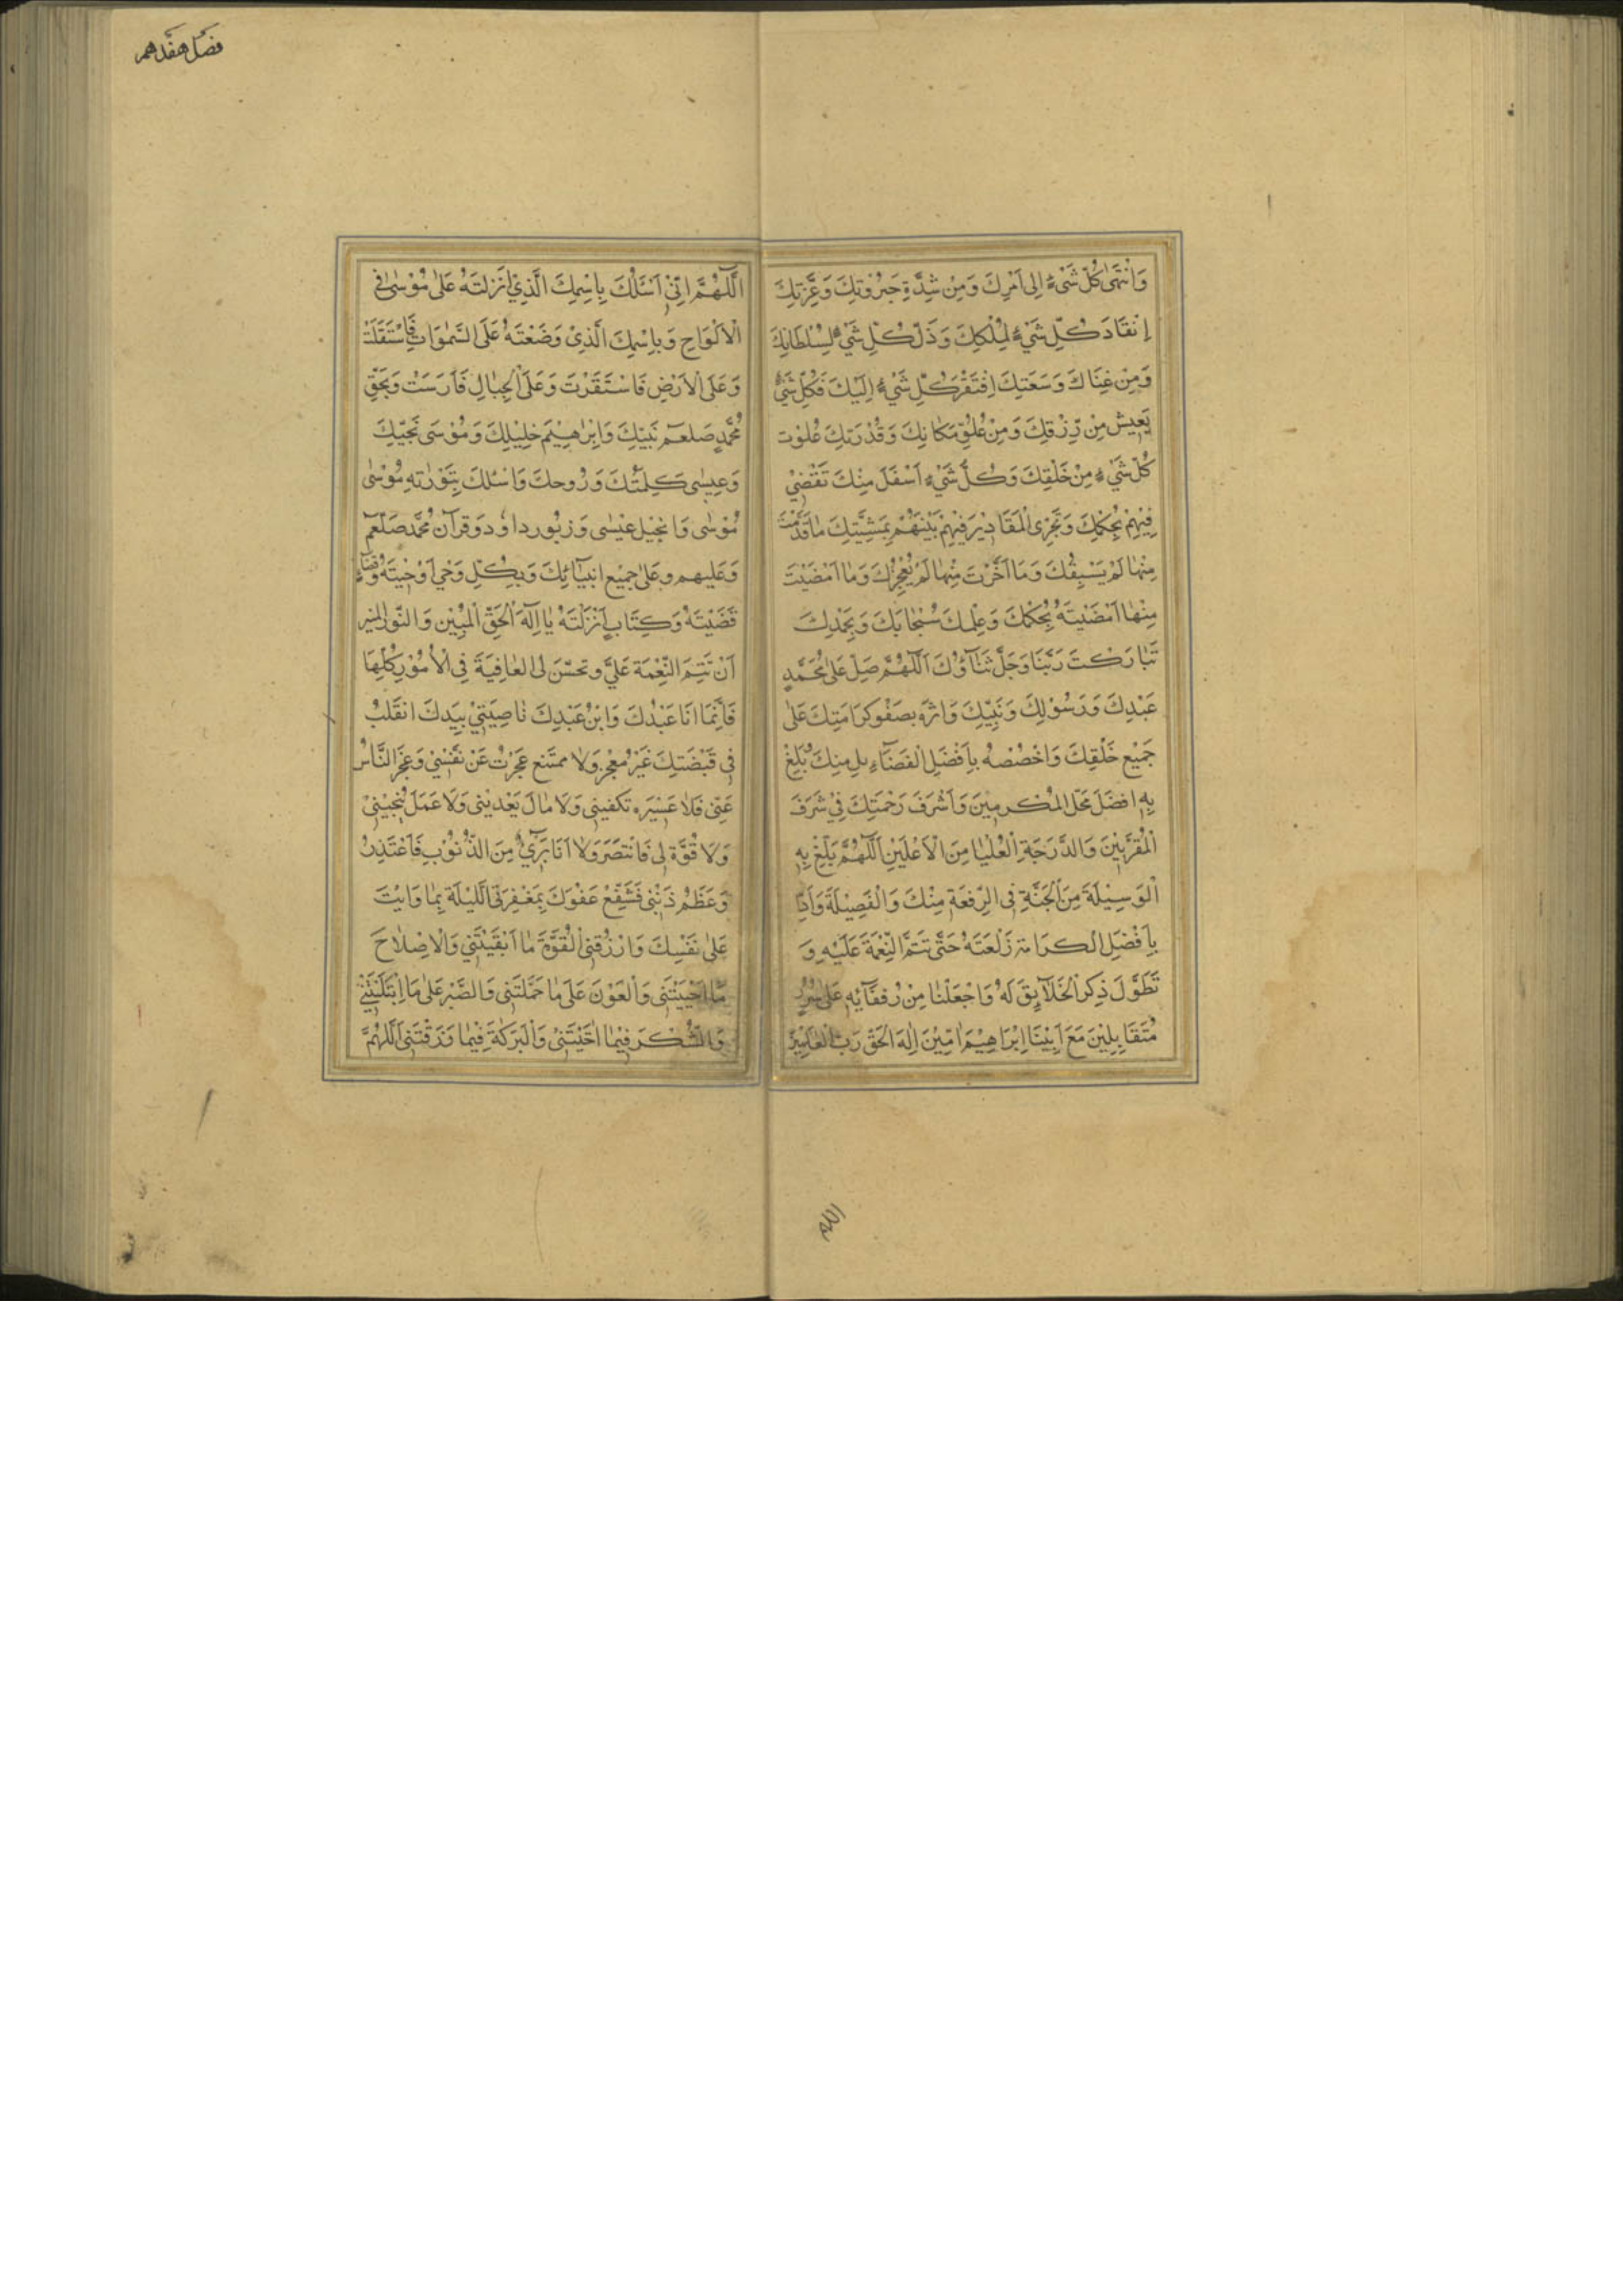 وَانْتَهىٰ كُلُّ شَىْءٍ اِلىٰ اَمْرِكَ وَمِنْ شِدَّةِ جَبَرُوْتِكَ وَعِزَّتِكَ
اِنْقَادَ كُلِّ شَيْءٍ لِمُلْكِكَ وَذَلَّ كُلِّ شَيْءٍ لِسُلْطَانِكَ
وَمِنْ غِنَاكَ وَسَعَتِكَ اِفْتَقَرَ كُلِّ شَيْءٍ اِلَيْكَ فَكُلِّ شَيْءٍ
يَعِيْشُ مِنْ رِزْقِكَ وَمِنْ عُلُوِّ مَكَانِكَ وَقُدْرَتِكَ عُلُوْت
كُلِّ شَيْءٍ مِنْ خَلْقِكَ وَكُلُّ شَيْءٍ اَسْفَلَ مِنْكَ تَقْضِيْ
فِيْهِمْ بِحُكْمِكَ وَتَجْرِى الْمَقَادِيْرَ فِيْهِمْ بَيْنَهُمْ بِمَشِيَّتِكَ مَا قَدَّمْتَ
مِنْهَا لَمْ يَسْبِقْكَ وَمَا اَخَّرْتَ مِنْهَا لَمْ يُعْجِزْكَ وَمَا اَمْضَيْتَ
مِنْهَا اَمْضَيْتَهُ بِحُكْمِكَ وَعِلْمِكَ سُبْحَانَكَ وَبِحَمْدِكَ
تَبَارَكْتَ رَبَّنَا وَجَلَّ ثَنَآؤُكَ اَللّٰهُمَّ صَلِّ عَلىٰ مُحَمَّدٍ
عَبْدِكَ وَرَسُوْلِكَ وَنَبِيِّكَ وَاثْرَه بِصَفْوِ كَرَامَتِكَ عَلىٰ
جَمِيْعِ خَلْقِكَ وَاخْصُصْهُ بِاَفْضَلِ الْفَضَآءِلِ مِنْكَ بَلِّغْ
بِهِ افْضَلَ مَحَلّ الْمُكْرَمِيْنَ وَاَشْرَفَ رَحْمَتِكَ فِيْ شَرَفَ
الْمُقَرَّبِيْنَ وَالدَّرَجَةِ الْعُلْيَا مِنَ الْاَعْلَيْنَ اَللّٰهُمَّ بَلِّغْ بِهِ
الْوَسِيْلَةَ مِنَ الْجَنَّةِ فِى الرِّفْعَةِ مِنْكَ وَالْفَضِيْلَةَ
بِاَفْضَلِ الكرَامَة زَلْعَتَهُ حَتّٰى تَتَمَّ النِّعْمَةَ عَلَيْهِ وَ
تَطَوَّلَ ذِكْرَ الْخَلَآيِقَ لَهُ وَاجْعَلْنَا مِنْ رُفَقَآئِهِ عَلىٰ سُرُرٍ
مُتَقَابِلِيْنَ مَعَ اَبِيْنَا اِبْرَاهِيْمَ اٰمِيْنَ اِلٰهَ الْحَقِّ رَبَّ الْعَالَمِيْنَ
الله
فصل هفدهم
اَللّٰهُمَّ اِنِّيْ اَسْئَلُكَ بِاسْمِكَ الَّذِيْ اَنْزَلْتَهُ عَلىٰ مُوْسىٰ فِى
الْاَلْوَاحِ وَبِاسْمِكَ الَّذِيْ وَضَعْتَهُ عَلَى السَّمٰوَاتِ فَاسْتَقَلَّتْ
وَعَلَى الْاَرْضِ فَاسْتَقَرَّتْ وَعَلَى الْجِبَالِ فَارَسَتْ وَبِحَقِّ
مُحَمَّدٍ صَلعَم نَبِيِّكَ وَاِبْرٰهِيْمَ خَلِيْلِكَ وَمُوْسىٰ نَجِيِّكَ
وَعِيْسٰى كَلِمَتُكَ وَرُوحِكَ وَاسْئلكَ بِتَوْرٰتهِ مُوْسٰى
مُوْسٰى وَانجِيْل عِيْسٰى وَزبُور داوُد وَقرآن مُحَمَّد صَلعَم
وَعَليهم وعَلىٰ جَمِيْع انبِيَآئِكَ وَبِكُلِّ وَحْيٍ اَوْحَيْتَهُ وَقَضَآءٍ
قَضَيْتَهُ وَكِتَابٍ اَنْزَلْتَهُ يَا اِلٰهَ الْحَقِّ الْمُبِيْن وَالنُّوْر المنِير
اَنْ تَتِمَّ النِّعْمَةَ عَلَيَّ وتحسّنَ لِى العَافِيَةَ فِى الْاُمُوْرِ كُلِّهَا
فَاِنَّمَا انَا عَبْدُكَ وَابْنُ عَبْدِكَ نَاصِيَتِيْ بِيَدِكَ انقَلَبُ
فِى قَبْضَتِكَ غَيْرَ مُعْجِزٍ وَلَا ممتَنع عَجَزْتُ عَنْ نَفْسِيْ وَعَجَزَ النَّاسُ
عَنِّى فَلَا عَشِيْرَه تكفينِى وَلَا مَالَ يَعْدينى وَلَا عَمَلَ يُنْجِيْنِىْ
وَلَا قُوَّةَ لِى فَانْتَصَرَ وَلَا اَنَا بَرِىٌٔ مِنَ الذُّنُوْبِ فَاَعْتَذِرُ
وَعَظُمَ ذَنْبِى فَشَفِّعْ عَفْوَكَ بِمَغْفِرَتِى اللَّيْلَة بِمَا وَايْتَ
عَلىٰ نَفْسِكَ وَارْزُقنِى الْقُوَّةَ مَا اَبْقَيْتَنِي وَالْاِصْلَاحَ
مَا اَحْيَيْتَنِى وَالْعَوْنَ عَلىٰ مَا حَمَّلْتَنِى وَالصَّبْرَ عَلىٰ مَا اِبْتَلَيْتَنِىْ
وَالشُّكْرَ فِيْمَا اٰتَيْتَنِىْ وَالْبَرَكَةَ فِيْمَا رَزَقْتَنِى اَللّٰهُمَّ